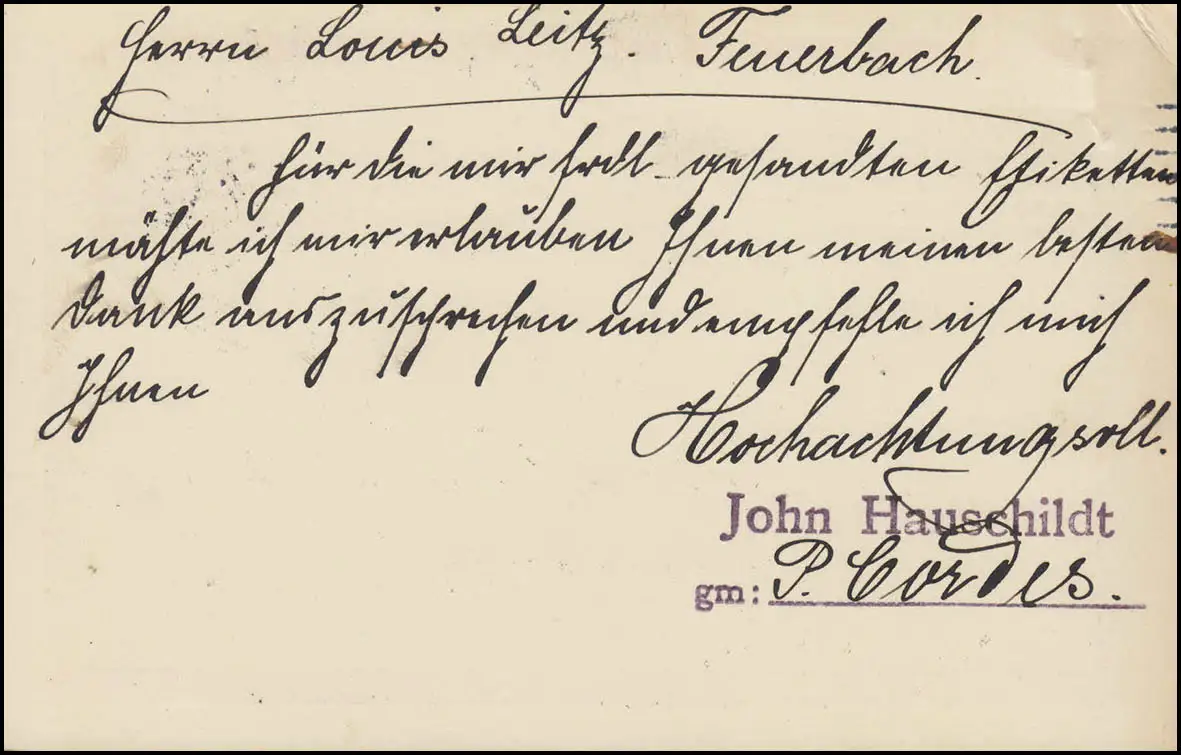 Herrn Louis Leitz. Feuerbach.
Für die mir frdl. gesandten Etiketten
möchte ich mir erlauben Ihnen meinen besten
Dank auszusprechen und empfehle ich mich
Ihnen
Hochachtungsvoll.
John Hauschildt
gm: P. Cordes.